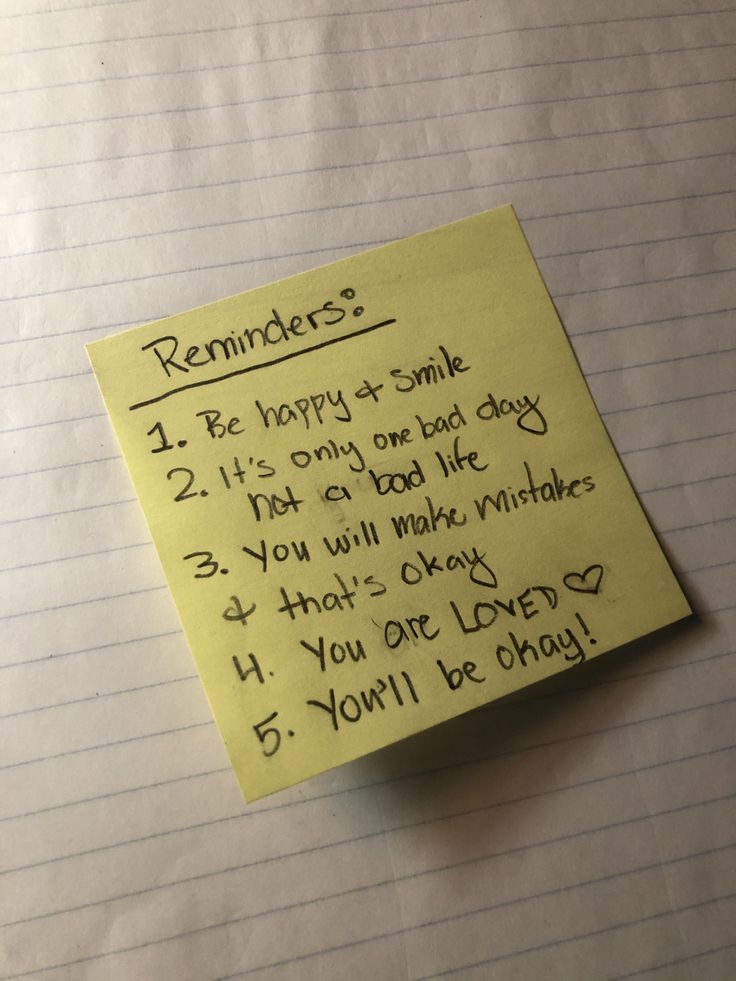 Reminders:
1. Be happy & smile
2. It's only one bad day
not a bad life
3. You will make mistakes
& that's okay
4. You are LOVED ♡
5. You'll be okay!